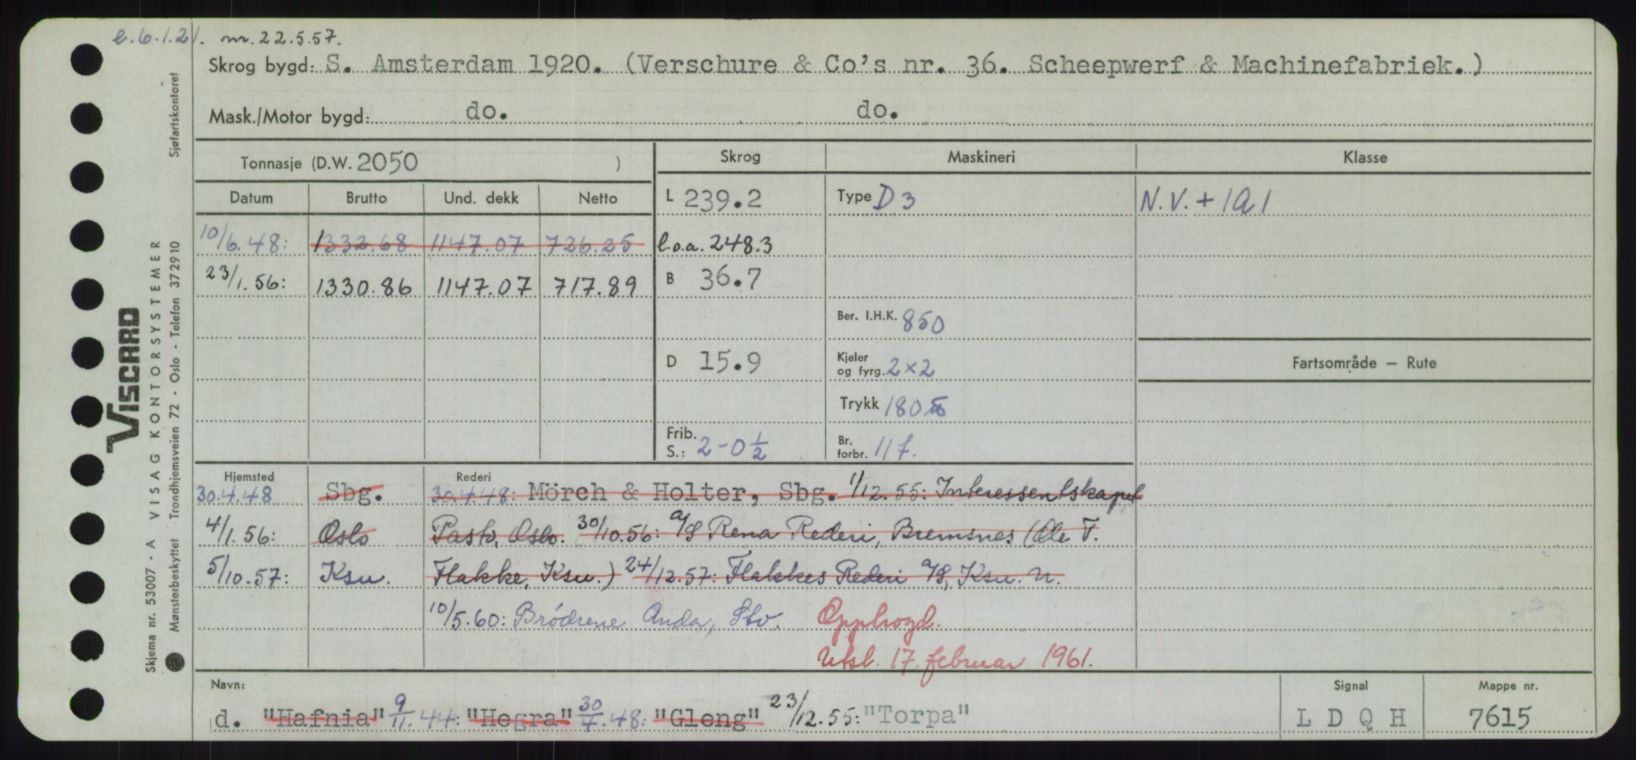 e.6.1.21. nr. 22.5.57.
Skrog bygd: S. Amsterdam 1920. (Verschure & Co's nr. 36. Scheepwerf & Machinefabriek.)
Mask./Motor bygd: do. do.
Tonnasje (D.W. 2050 ) Skrog Maskineri Klasse
Datum Brutto Und. dekk Netto L 239.2 Type D 3 N.V. + 1A1
10/6.48: 1332.68 1147.07 726.25 l.o.a. 248.3
23/1.56: 1330.86 1147.07 717.89 B 36.7
Ber. I.H.K. 850
D 15.9 Kjeler og fyrg. 2×2 Fartsområde – Rute
Trykk 180
Frib. S.: 2-0 1/2 Br. forbr. 11 t.
Hjemsted Rederi
30.4.48 Sbg. 30.4.48: Mörch & Holter, Sbg. 1/12.55: Interessentskapet
4/1.56: Oslo Pasto, Oslo. 30/10.56: A/S Rena Rederi, Bremsnes (Ole T.
5/10.57: Ksu. Flakke, Ksu.) 24/12.57: Flakkes Rederi A/S, Ksu. N.
10/5.60: Brödrene Anda, Stv. Opphogd.
Utsl. 17. februar 1961.
Navn: Signal Mappe nr.
d. "Hafnia" 9/11.44: "Hegra" 30/4.48: "Gleng" 23/12.55: "Torpa" L D Q H 7615
VISCARD
A VISAG KONTORSYSTEMER
Skjema nr. 53007 - A
Mønsterbeskyttet Trondhjemsveien 72 - Oslo - Telefon 372910 Sjøfartskontoret